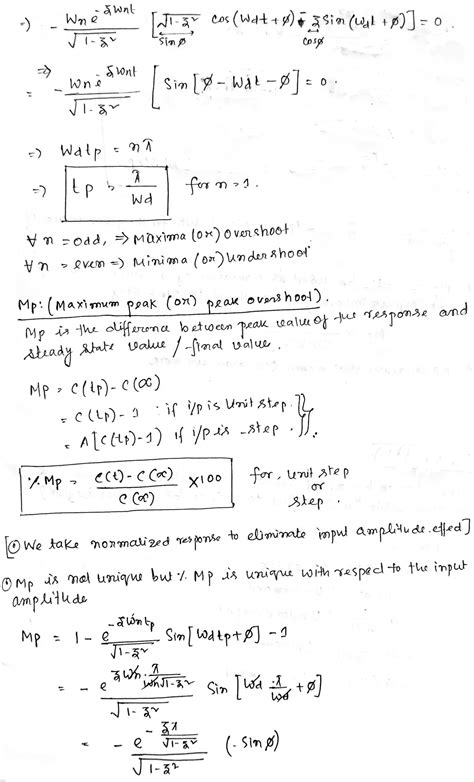 ⇒ - Wn e^-ξWnt / √1-ξ² [√1-ξ² cos(Wdt+φ) - ξ Sin(Wdt+φ)] = 0
sinφ cosφ
⇒ = - Wn e^-ξWnt / √1-ξ² [ Sin[φ - Wdt - φ] = 0.
⇒ Wdtp = nπ
⇒ tp = π / Wd for n=1.
∀ n = odd, ⇒ Maxima (or) overshoot
∀ n = even ⇒ Minima (or) Undershoot
Mp: (Maximum peak (or) peak overshoot).
Mp is the difference between peak value of the response and
steady state value / final value.
Mp = c(tp) - c(∞)
= c(tp) - 1 : if i/p is Unit step.
= A[c(tp)-1) if i/p is step.
% Mp = c(t) - c(∞) / c(∞) ×100 for, unit step
or
step.
[① We take normalized response to eliminate input amplitude effect]
① Mp is not unique but % Mp is unique with respect to the input
amplitude
Mp = 1 - e^-ξWntp / √1-ξ² Sin[Wdtp+φ] - 1
= - e^ξWn·π/Wn√1-ξ² / √1-ξ² Sin [Wd · π/Wd + φ]
= - e^-ξπ/√1-ξ² / √1-ξ² (-Sinφ)